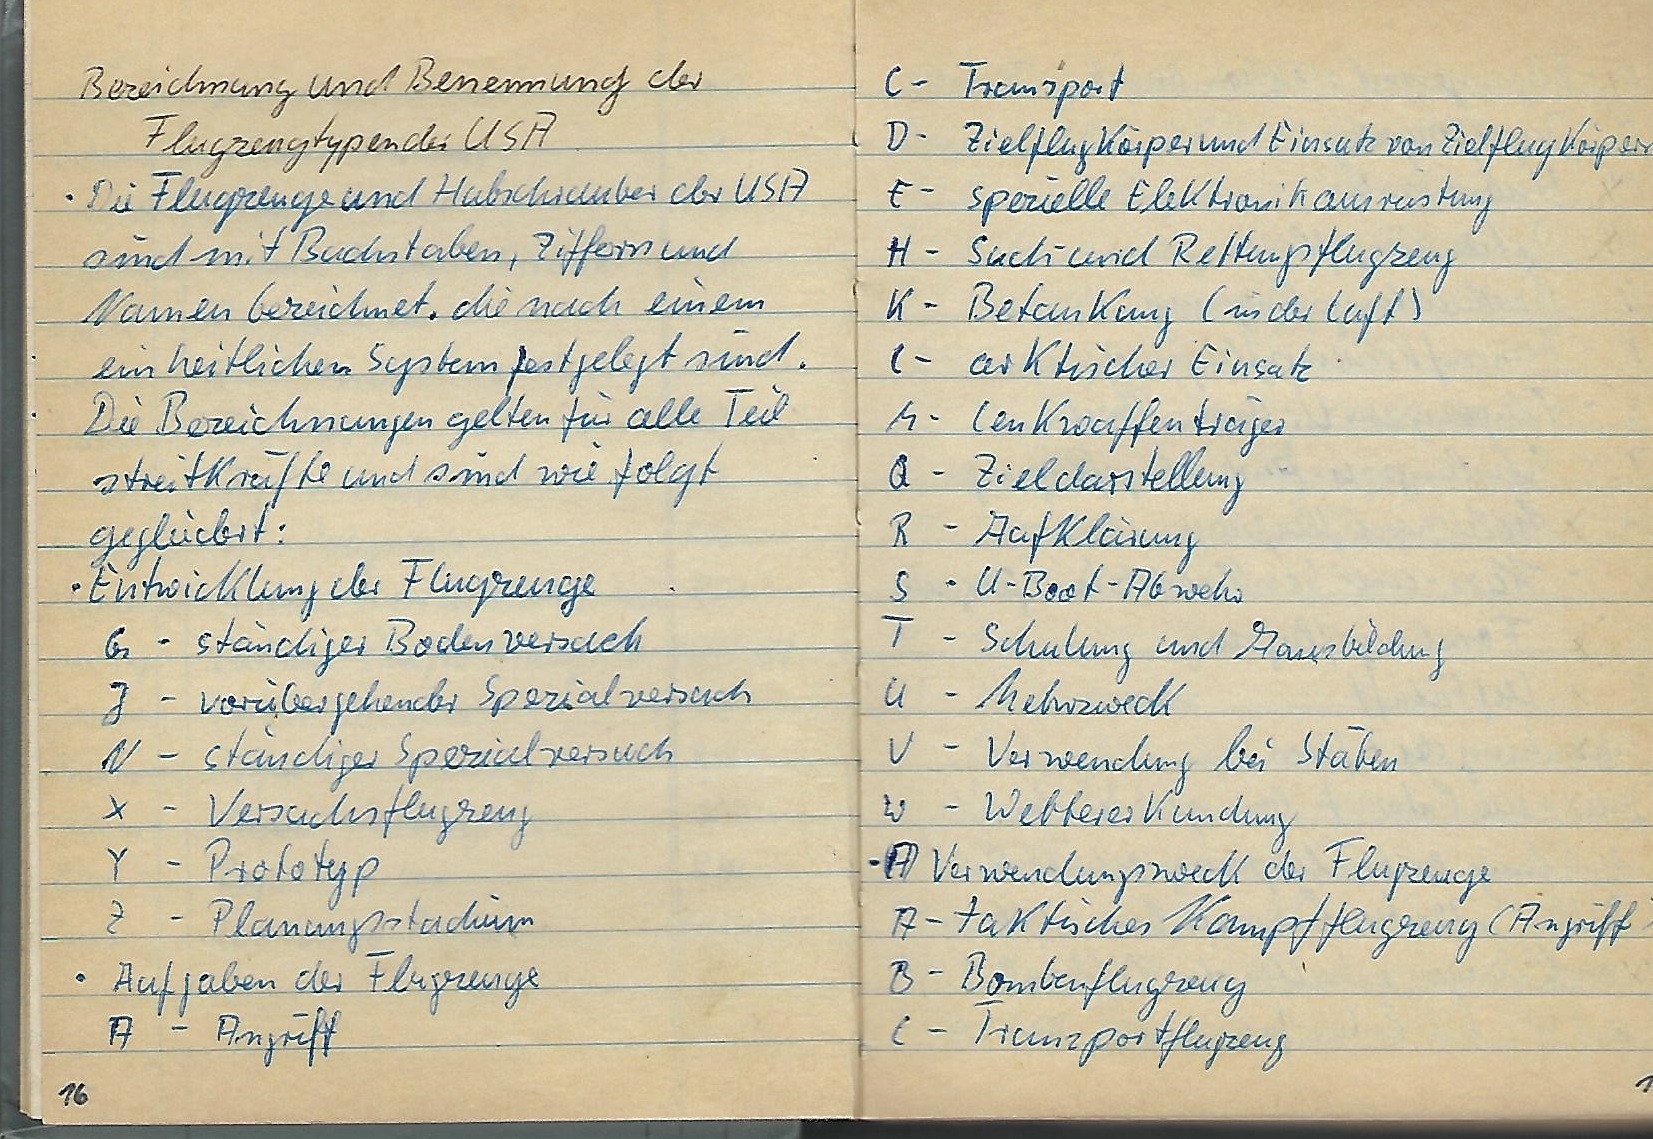 Bezeichnung und Benennung der
Flugzeugtypen der USA
· Die Flugzeuge und Hubschrauber der USA
sind mit Buchstaben, Ziffern und
Namen bezeichnet. die nach einem
einheitlichen System festgelegt sind.
Die Bezeichnungen gelten für alle Teil
streitkräfte und sind wie folgt
gegliedert:
· Entwicklung der Flugzeuge
G - ständiger Bodenversuch
J - vorübergehender Spezialversuch
N - ständiger Spezialversuch
X - Versuchsflugzeug
Y - Prototyp
Z - Planungsstadium
· Aufgaben der Flugzeuge
A - Angriff
16
C - Transport
D - Zielflugkörper und Einsatz von Zielflugkörpern
E - spezielle Elektronikausrüstung
H - Such- und Rettungsflugzeug
K - Betankung (in der Luft)
L - arktischer Einsatz
M - Lenkwaffenträger
Q - Zieldarstellung
R - Aufklärung
S - U-Boot-Abwehr
T - Schulung und Ausbildung
U - Mehrzweck
V - Verwendung bei Stäben
W - Wettererkundung
· Verwendungszweck der Flugzeuge
A - taktisches Kampfflugzeug (Angriff)
B - Bombenflugzeug
C - Transportflugzeug
1